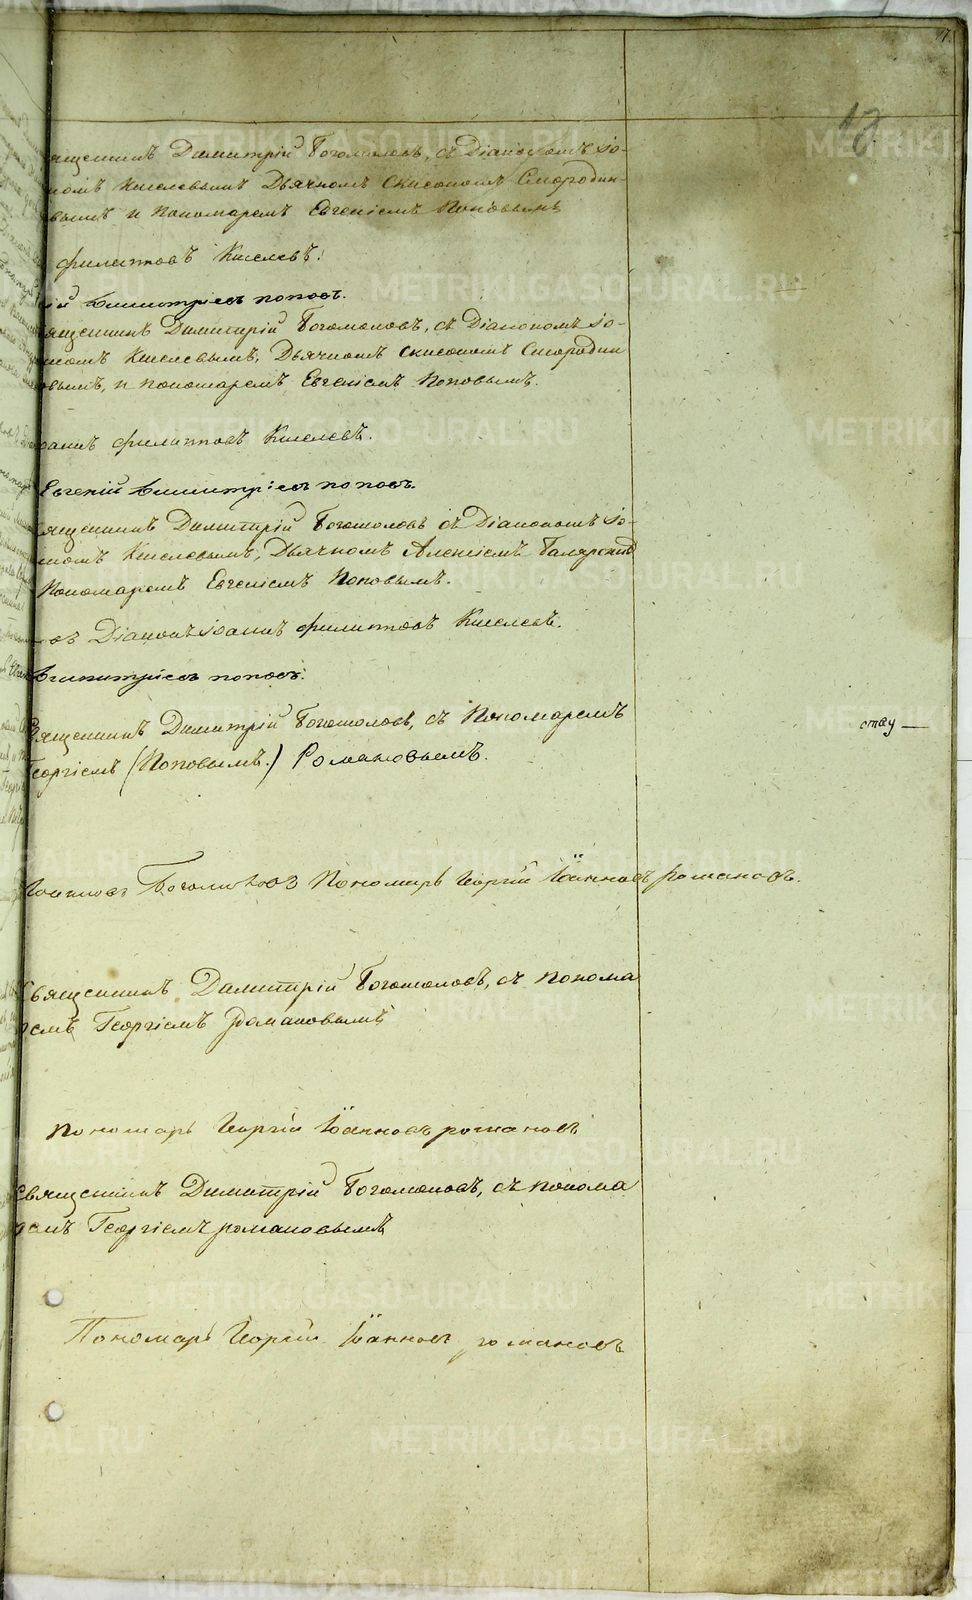 17.
18.
ященникъ Димитрій Богомоловъ, съ Діакономъ Іо-
номъ Киселевымъ Дьячкомъ Смородин-
вымъ и Пономаремъ Евгеніемъ Поповымъ
Филиповъ Киселевъ.
ій Димитріевъ Поповъ.
ященникъ Димитрій Богомоловъ, съ Діакономъ Іо-
номъ Киселевымъ, Дьячкомъ Смородин
овымъ, и Пономаремъ Евгеніемъ Поповымъ.
оаннъ Филиповъ Киселевъ.
Евгеній Димитріевъ Поповъ.
ященникъ Димитрій Богомоловъ съ Діакономъ Іо-
номъ Киселевымъ, Дьячкомъ Алексіемъ
Пономаремъ Евгеніемъ Поповымъ.
Діаконъ Іоаннъ Филиповъ Киселевъ.
Димитріевъ Поповъ.
вященникъ Димитрій Богомоловъ, съ Пономаремъ
Георгіемъ (Поповымъ.) Романовымъ.
Пономарь Георгій Іоанновъ Романовъ.
Священникъ Димитрій Богомоловъ, съ Понома
ремъ Георгіемъ Романовымъ
Пономарь Георгій Іоанновъ Романовъ
Священникъ Димитрій Богомоловъ, съ Понома
ремъ Георгіемъ Романовымъ
Пономарь Георгій Іоанновъ Романовъ
METRIKI.GASO-URAL.RU